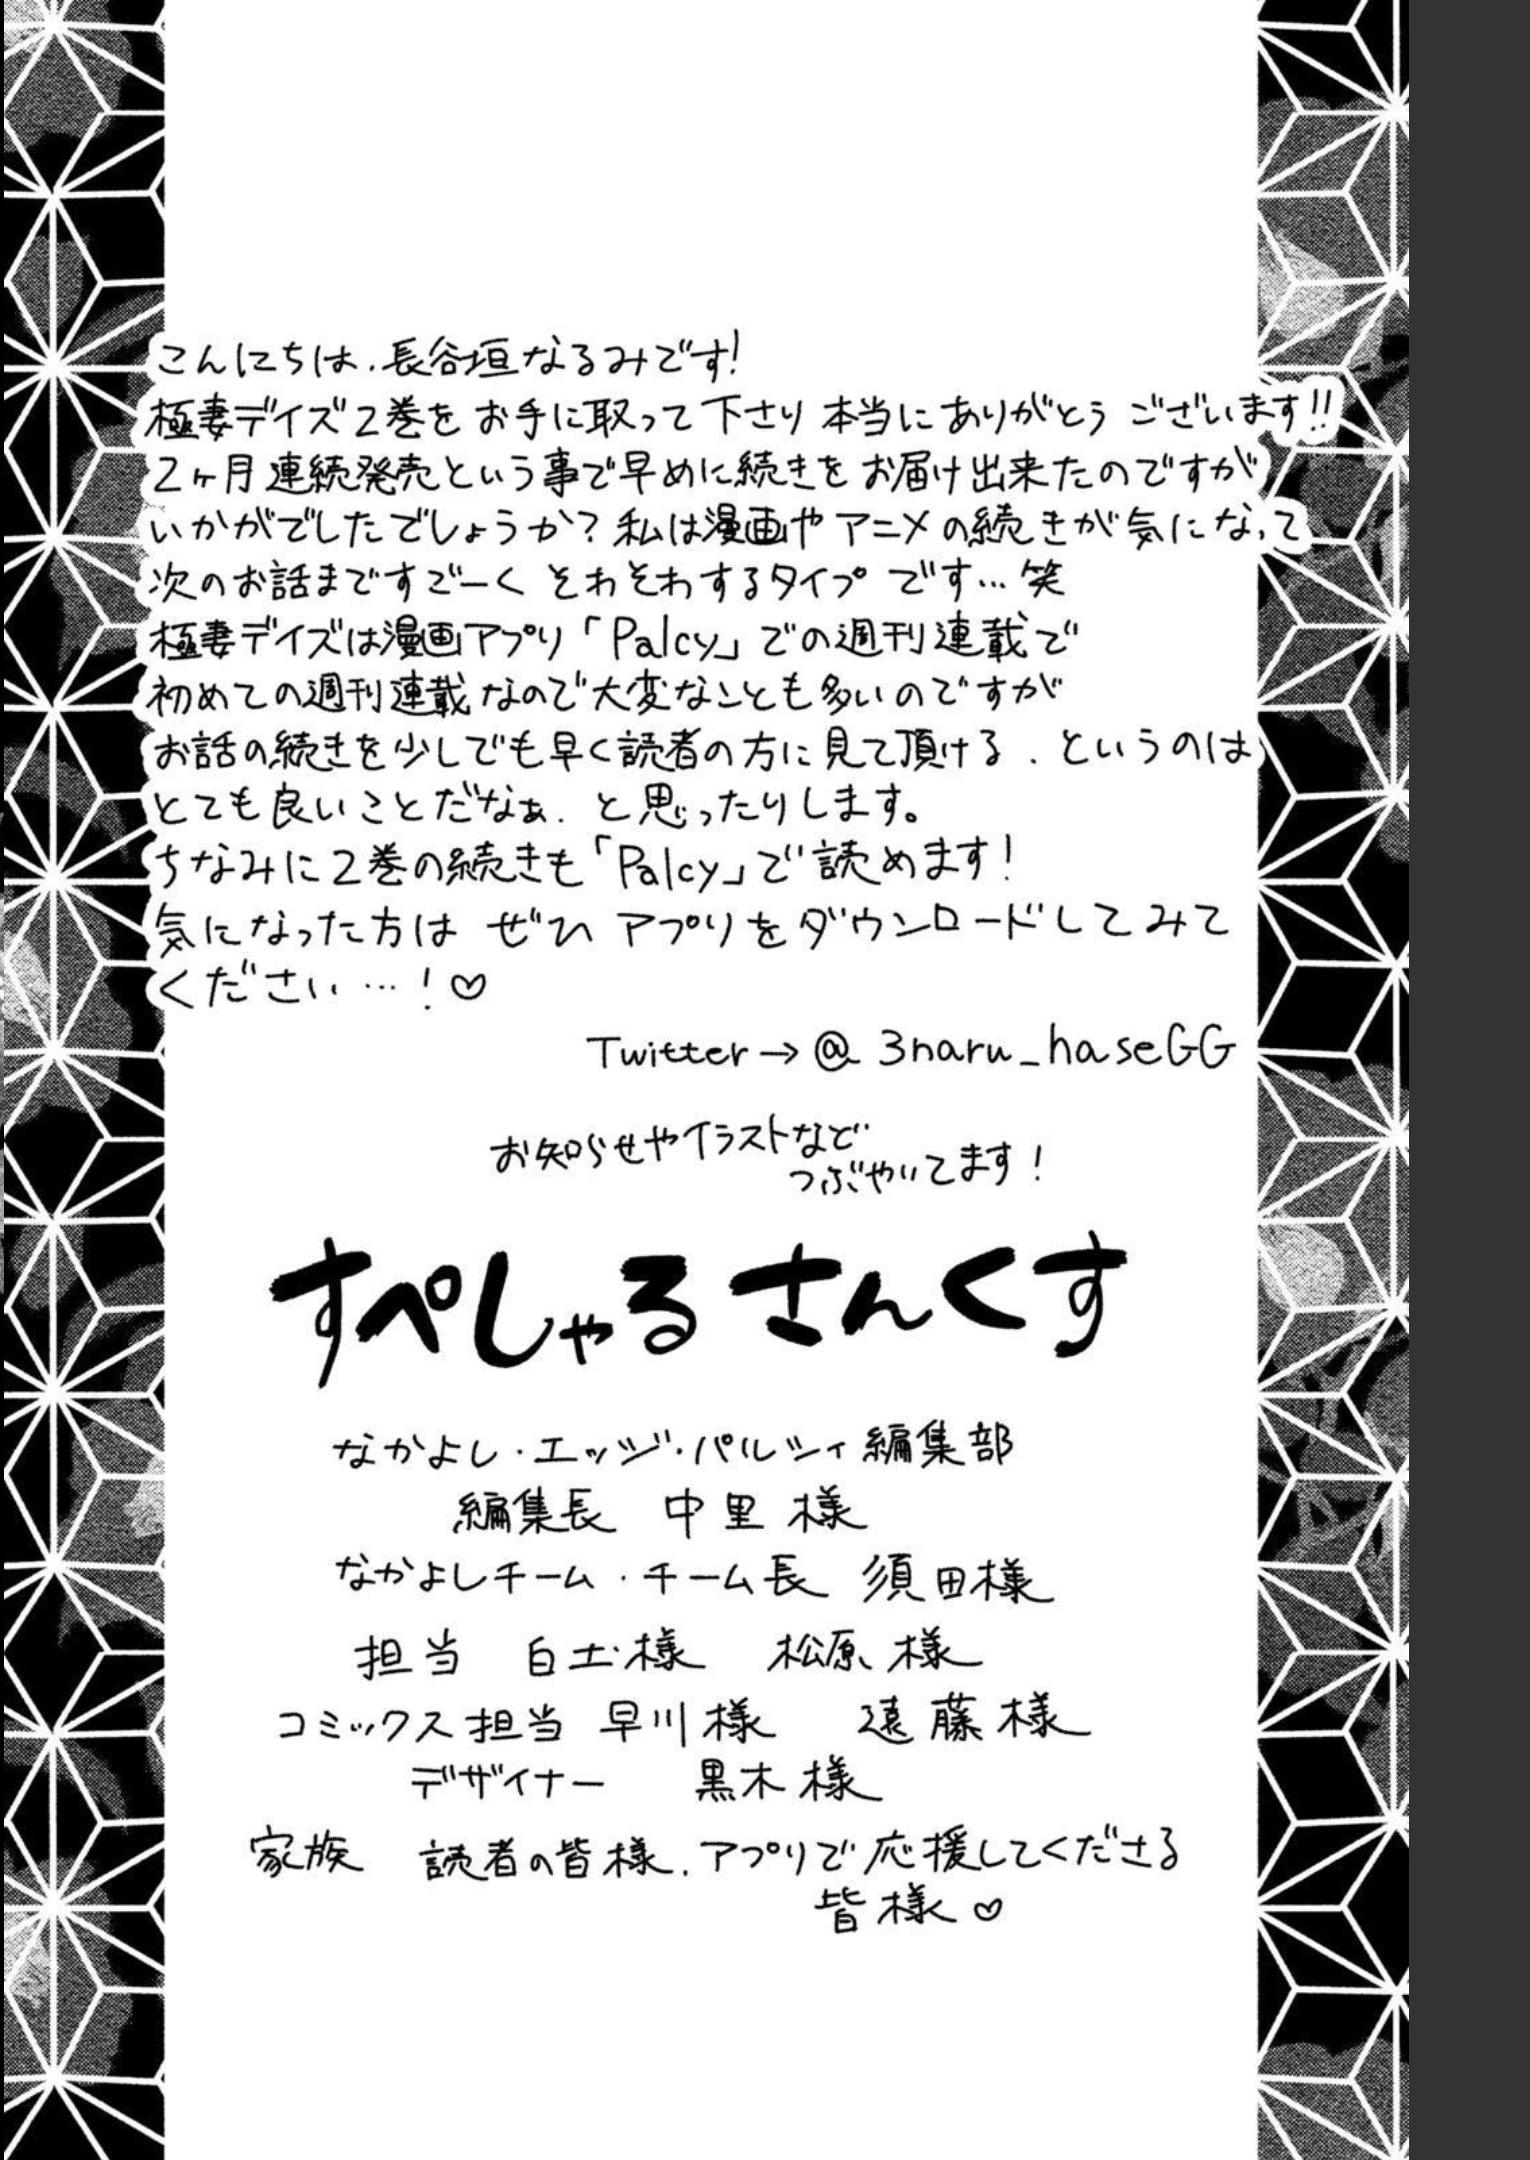 こんにちは、長谷垣なるみです!
極妻デイズ2巻を お手に取って下さり 本当にありがとう ございます!!
2ヶ月連続発売という事で早めに続きをお届け出来たのですが
いかがでしたでしょうか?私は漫画やアニメの続きが気になって
次のお話まですごーく そわそわするタイプ です…笑
極妻デイズは漫画アプリ「Palcy」での週刊連載で
初めての週刊連載なので大変なことも多いのですが
お話の続きを少しでも早く読者の方に見て頂ける、というのは
とても良いことだなぁ、と思ったりします。
ちなみに2巻の続きも「Palcy」で読めます!
気になった方は ぜひ アプリをダウンロードしてみて
ください…!♡
Twitter→@3naru_haseGG
お知らせやイラストなど
つぶやいてます!
すぺしゃる さんくす
なかよし・エッジ・パルシィ編集部
編集長 中里様
なかよしチーム・チーム長 須田様
担当 白土様 松原様
コミックス担当 早川様 遠藤様
デザイナー 黒木様
家族 読者の皆様、アプリで応援してくださる
皆様♡